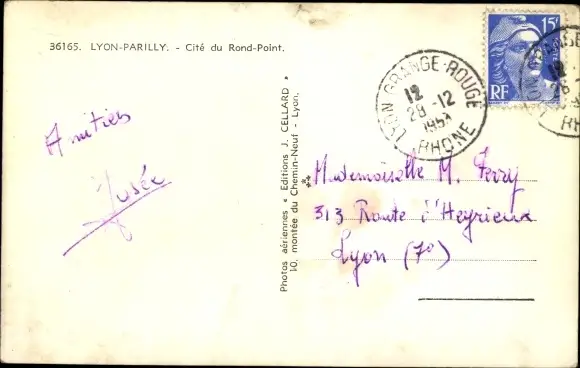 36165. LYON-PARILLY. - Cité du Rond-Point.
Amitiés
Josée
Photos aériennes « Editions J. CELLARD »
10, montée du Chemin-Neuf - Lyon.
15F
RF
LYON GRANGE-ROUGE
12
28-12
RHONE
Mademoiselle M. Ferry
313 Route d'Heyrieux
Lyon (7º)